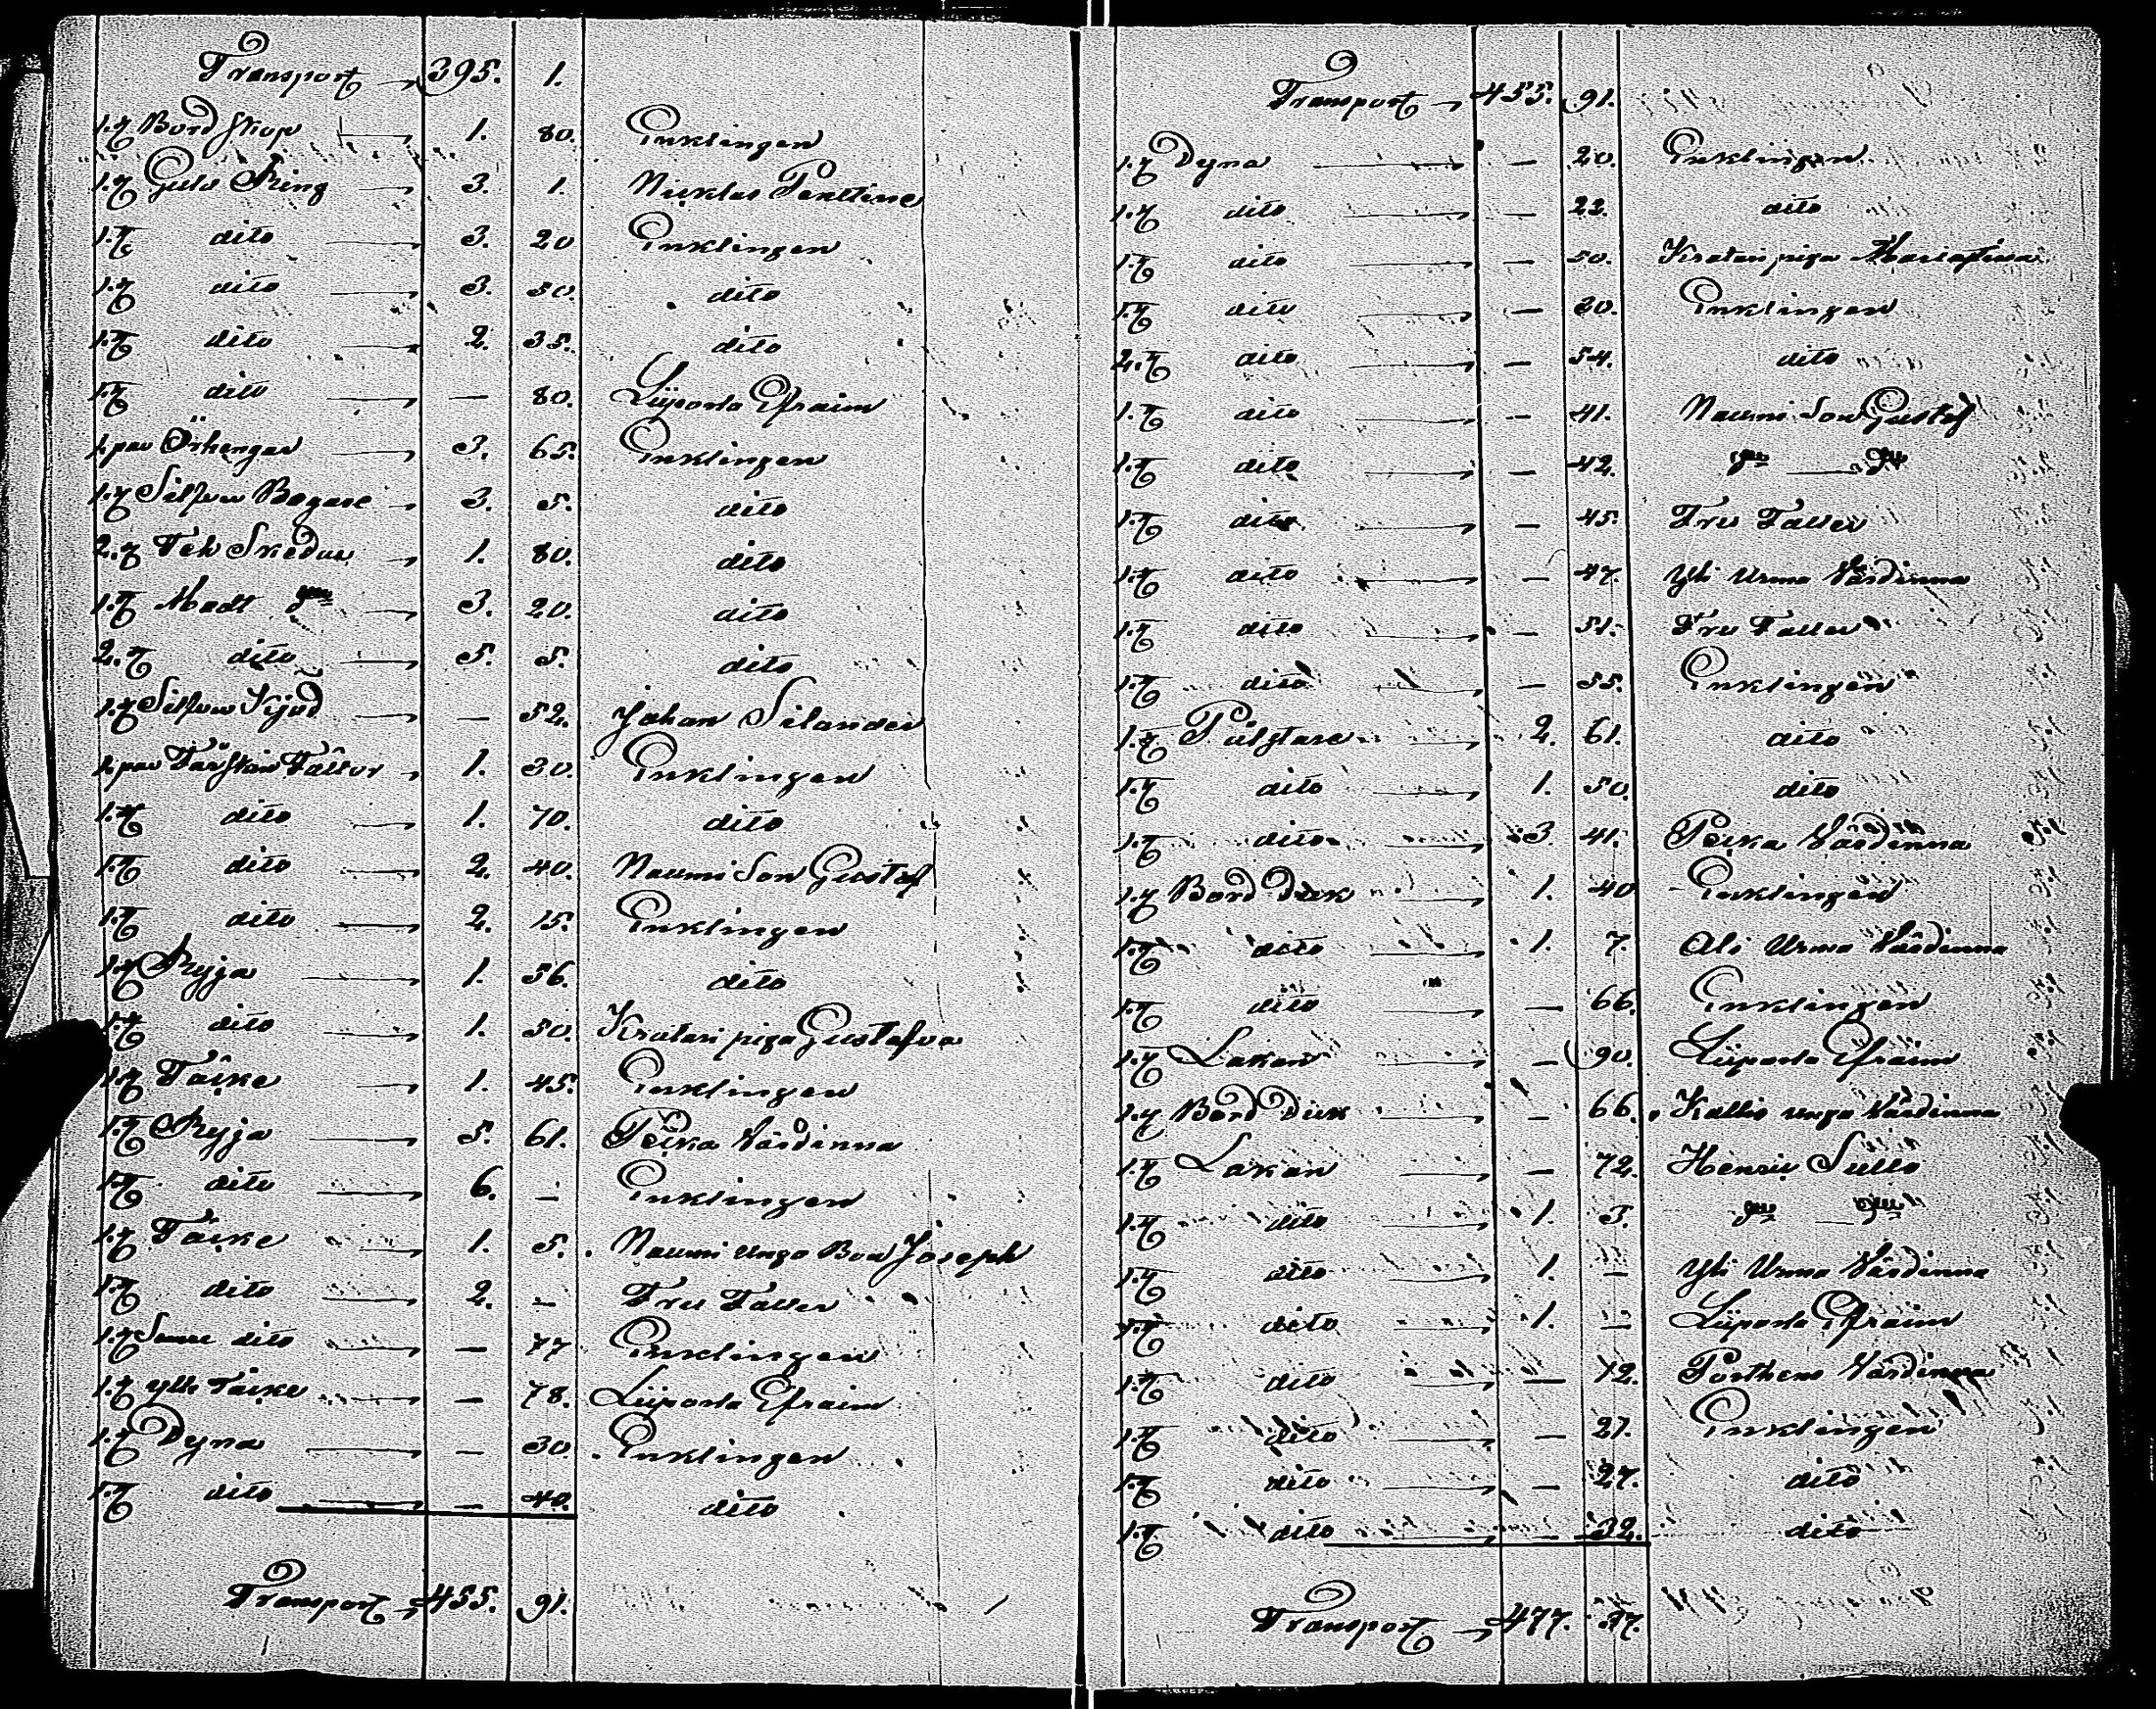 Transport 395. 1.
1. st Bord skop 1. 80. Enklingen
1. st Guld Ring 3. 1. Nicklas Penttine
1. st dito 3. 20 Enklingen
1. st dito 3. 50. dito
1. st dito 2. 35. dito
1. st dito — 80. Liiporla Efraim
1. par Örhengar 3. 65. Enklingen
1. st Silfver Bagare 3. 5. dito
2. st Teh Skedar 1. 80. dito
1. st Madt 3. 20. dito
2. st dito 5. 5. dito
1. st Silfver — 52. Johan Silander
1. par Fårskin Fällar 1. 30. Enklingen
1. st dito 1. 70. dito
1. st dito 2. 40. Naumi Son Gustaf
1. st dito 2. 15. Enklingen
1. st Ryja 1. 56. dito
1. st dito 1. 50. Kratari piga Gustafva
1. st Täcke 1. 45. Enklingen
1. st Ryja 5. 61. Peika Värdinna
1. st dito 6. — Enklingen
1. st Täcke 1. 5. Naumi unga Bon Joseph
1. st dito 2. — Fru Faller
1. st Semre dito — 77 Enklingen
1. st ylle Täcke — 78. Liiporla Efraim
1. st Dyna — 30. Enklingen
1. st dito — 40. dito
Transport 455. 91.
Transport 455. 91.
1. st Dyna — 20. Enklingen
1. st dito — 22. dito
1. st dito — 50. Kratari piga Mariastina
1. st dito — 20. Enklingen
2. st dito — 54. dito
1. st dito — 41. Naumi Son Gustaf
1. st dito — 42.
1. st dito — 45. Fru Faller
1. st dito — 47. Yli Urma Värdinna
1. st dito — 51. Fru Faller
1. st dito — 55. Enklingen
1. st Pålstare 2. 61. dito
1. st dito 1. 50. dito
1. st dito 3. 41. Peika Värdinna
1. st Bord Duk 1. 40 Enklingen
1. st dito 1. 7. Ali Urma Värdinna
1. st dito — 66. Enklingen
1. st Lakan — 90. Liiporla Efraim
1. st Bord Duk — 66. Kallio unga Värdinna
1. st Lakan — 72. Henric Sullo
1. st dito 1. 3.
1. st dito 1. — Yli Urma Värdinna
1. st dito 1. — Liiporla Efraim
1. st dito — 72. Porthens Värdinna
1. st dito — 27. Enklingen
1. st dito — 27. dito
1. st dito — 32. dito
Transport 477. 37.